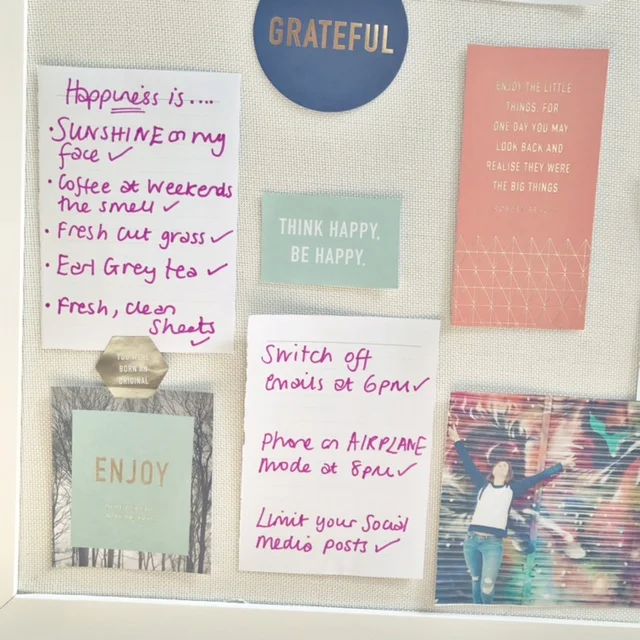 GRATEFUL
Happiness is....
• SUNSHINE on my
face ✓
• Coffee at weekends
the smell ✓
• Fresh cut grass ✓
• Earl Grey tea ✓
• Fresh, clean
sheets ✓
THINK HAPPY,
BE HAPPY.
ENJOY THE LITTLE
THINGS, FOR
ONE DAY YOU MAY
LOOK BACK AND
REALISE THEY WERE
THE BIG THINGS
BORN AN
ORIGINAL
ENJOY
Switch off
emails at 6pm ✓
Phone on AIRPLANE
mode at 8pm ✓
Limit your Social
Media posts ✓